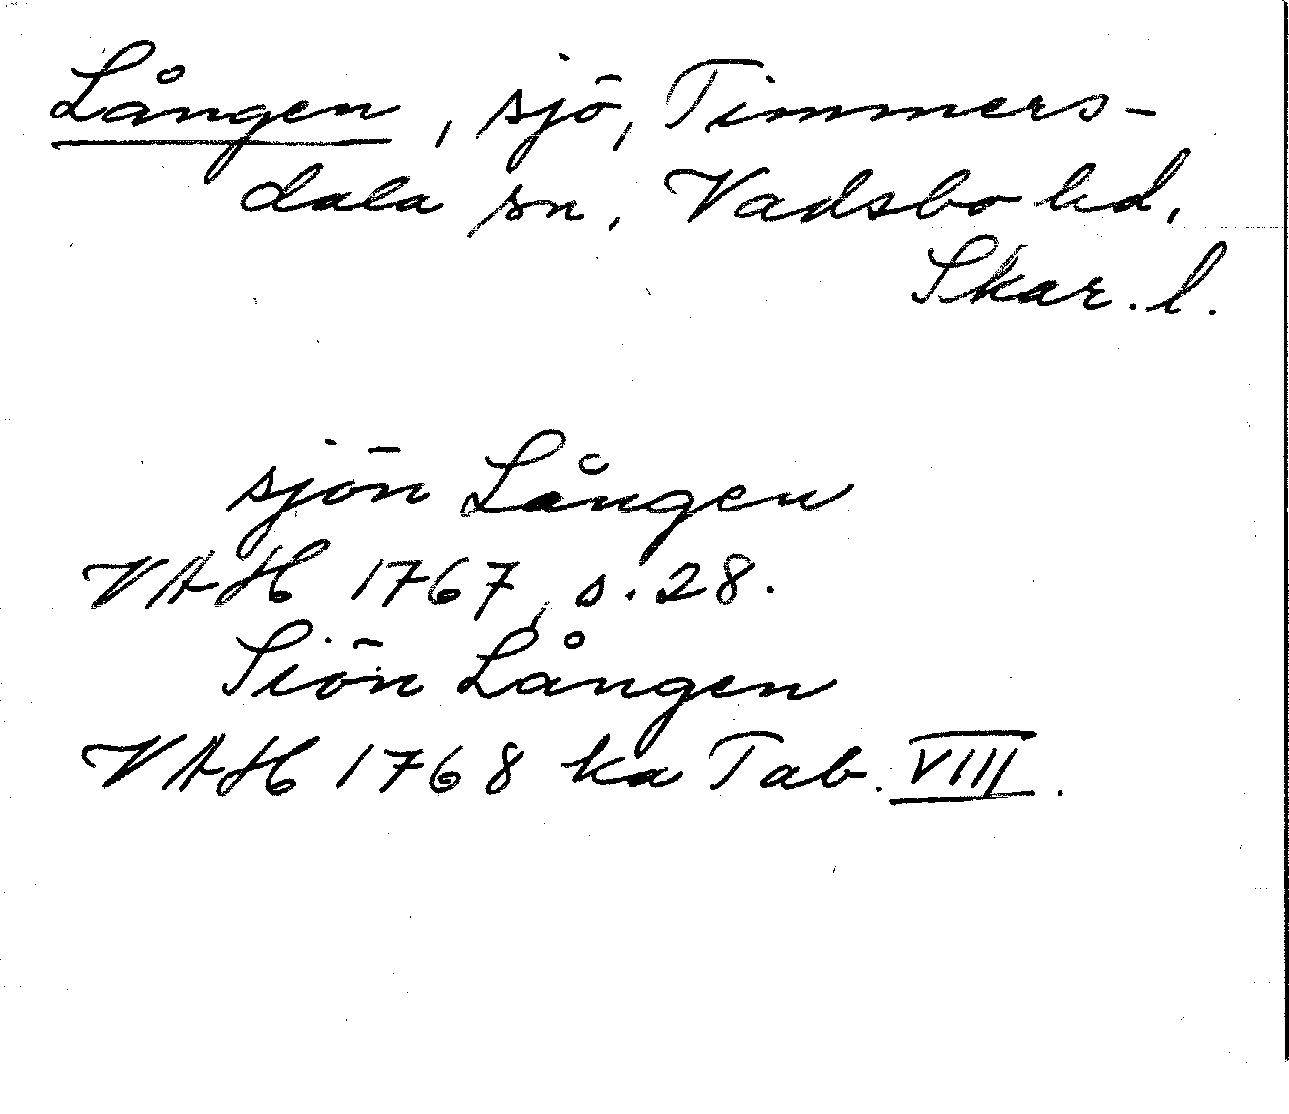 Lången, sjö, Timmers-
dala sn, Vadsbo hd,
Skar. l.
sjön Lången
VAH 1767, s. 28.
Siön Lången
VAH 1768 ka Tab. VIII.